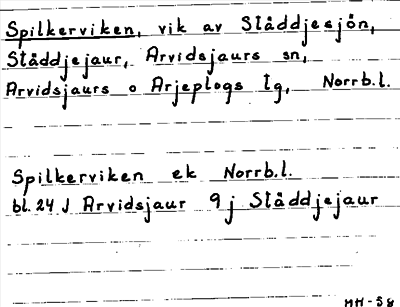 Spilkerviken, vik av Ståddjesjön,
Ståddjejaur, Arvidsjaurs sn,
Arvidsjaurs o Arjeplogs tg, Norrb.l.
Spilkerviken ek Norrb.l.
bl. 24 J Arvidsjaur 9 j Ståddjejaur
MH-58